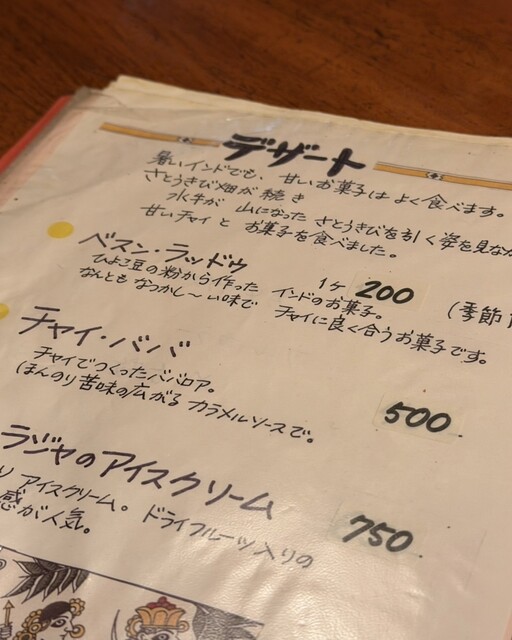 デザート
暑いインドでも、甘いお菓子は よく食べます。
さとうきび畑が続き
水牛が 山になった さとうきびを引く姿を見なが
甘いチャイと お菓子を食べました。
ベスン・ラッドゥ 1ケ 200 (季節
ひよこ豆の粉から作った インドのお菓子。
なんとも なつかし〜い味で チャイに良く合うお菓子です。
チャイ・ババ 500
チャイでつくったババロア。
ほんのり苦味の広がる カラメルソースで。
ラジャのアイスクリーム 750
り アイスクリーム。 ドライフルーツ入りの
感が人気。